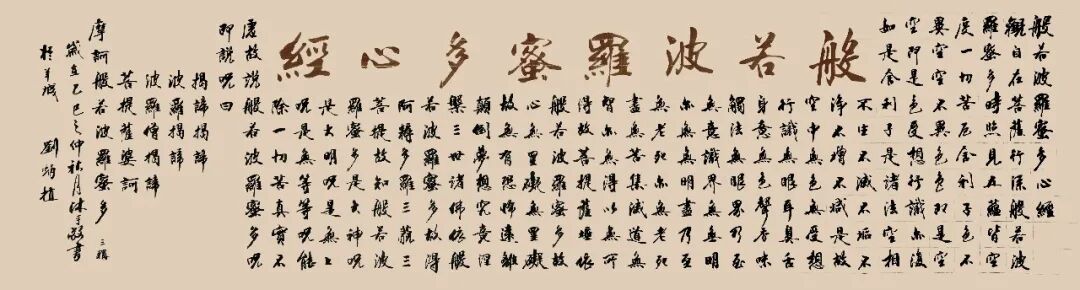 般若波羅蜜多心經
般若波羅蜜多心經
觀自在菩薩行深般若波
羅蜜多時照見五蘊皆空
度一切苦厄舍利子色不
異空空不異色色即是空
空即是色受想行識亦復
如是舍利子是諸法空相
不生不滅不垢不
淨不增不減是故
空中無色無受想
行識無眼耳鼻舌
身意無色聲香味
觸法無眼界乃至
無意識界無無明
亦無無明盡乃至
無老死亦無老死
盡無苦集滅道無
智亦無得以無所
得故菩提薩埵依
般若波羅蜜多故
心無罣礙無罣礙
故無有恐怖遠離
顛倒夢想究竟涅
槃三世諸佛依般
若波羅蜜多故得
阿耨多羅三藐三
菩提故知般若波
羅蜜多是大神咒
是大明咒是無上
咒是無等等咒能
除一切苦真實不
虛故說般若波羅蜜多咒
即說咒曰
揭諦揭諦
波羅揭諦
波羅僧揭諦
菩提薩婆訶
摩訶般若波羅蜜多 三稱
歲在乙巳之仲秋月沐手敬書
於羊城 劉 植